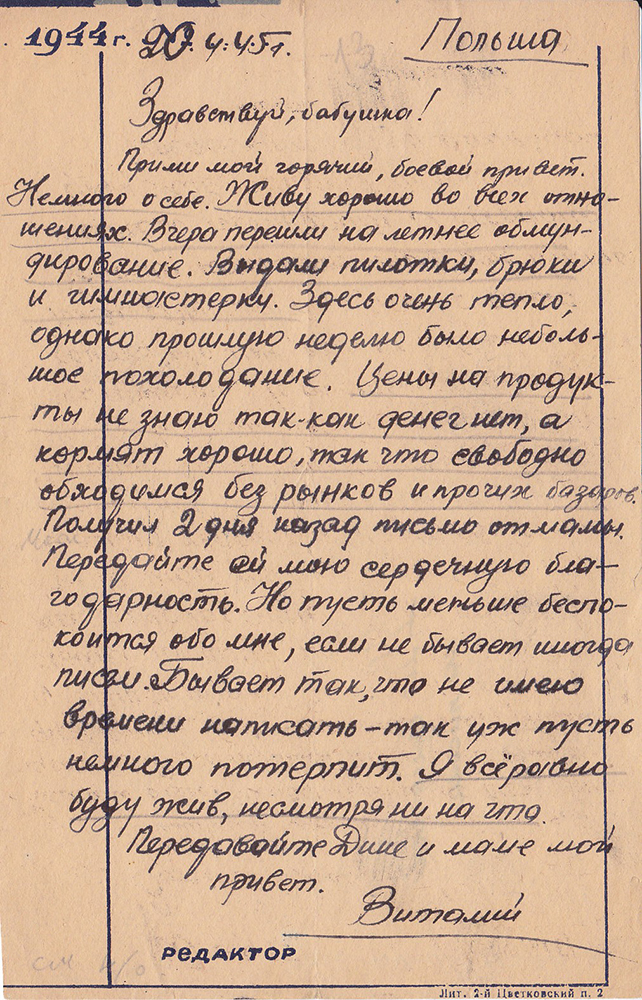 1944 г. 20.4.45г. Польша
Здравствуй, бабушка!
Прими мой горячий, боевой привет.
Немного о себе. Живу хорошо во всех отно-
шениях. Вчера перешли на летнее обмун-
дирование. Выдали пилотки, брюки
и гимнастерки. Здесь очень тепло,
однако прошлую неделю было неболь-
шое похолодание. Цены на продук-
ты не знаю так-как денег нет, а
кормят хорошо, так что свободно
обходимся без рынков и прочих базаров.
Получил 2 дня назад письмо от мамы.
Передайте ей мою сердечную бла-
годарность. Но пусть меньше беспо-
коится обо мне, если не бывает иногда
писем. Бывает так, что не имею
времени написать – так уж пусть
немного потерпит. Я всёравно
буду жив, несмотря ни на что.
Передавайте Дине и маме мой
привет.
Виталий
РЕДАКТОР
см н/о
Лит. 2-й Цветковский п. 2